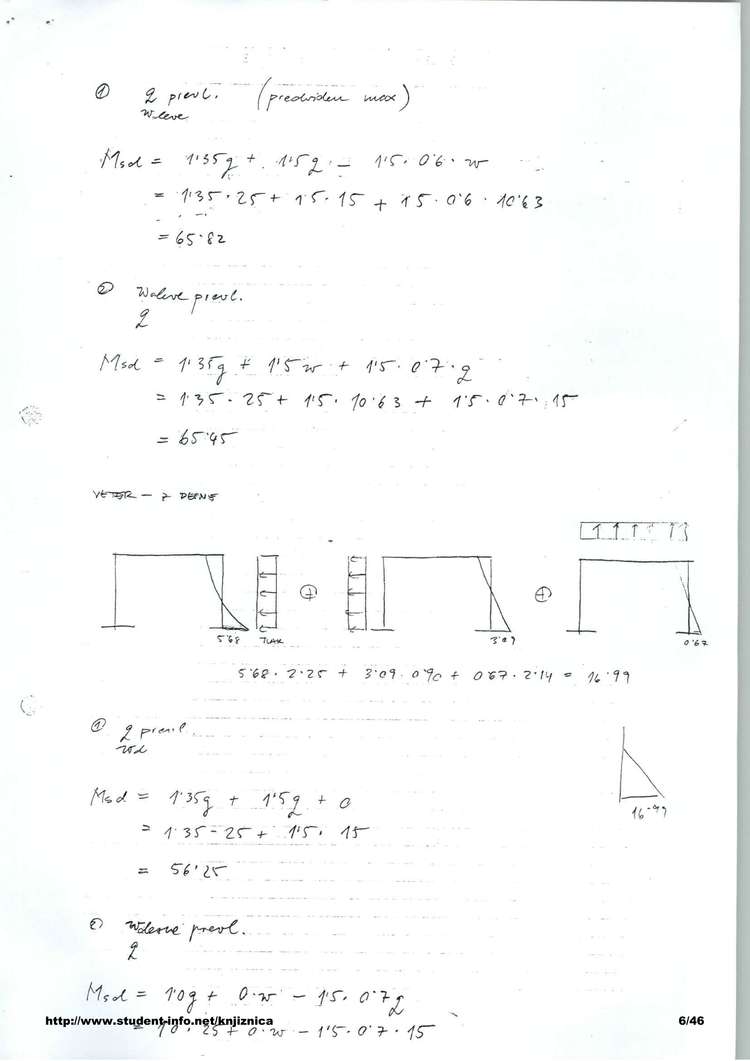 ① q prevl. (predviden max)
W leve
Msd = 1'35g + 1'5q - 1'5 · 0'6 · w
= 1'35 · 25 + 1'5 · 15 + 1'5 · 0'6 · 10'63
= 65'82
② W leve prevl.
q
Msd = 1'35g + 1'5w + 1'5 · 0'7 · q
= 1'35 · 25 + 1'5 · 10'63 + 1'5 · 0'7 · 15
= 65'45
VETER - z DESNE
5'68 TLAK ⊕ 3'09 ⊕ 0'67
5'68 · 2'25 + 3'09 · 0'90 + 0'67 · 2'14 = 16'99
① q prevl.
Wd
16'99
Msd = 1'35g + 1'5q + 0
= 1'35 - 25 + 1'5 · 15
= 56'25
② W desne prevl.
q
Msd = 1'0g + 0·w - 1'5 · 0'7q
http://www.student-info.net/knjiznica 6/46
= 1'0 · 25 + 0·w - 1'5 · 0'7 · 15